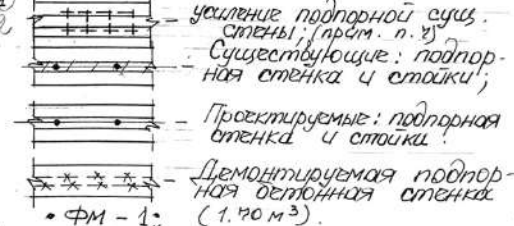 усиление подпорной сущ.
стены; (прим. п. 4)
Существующие: подпор-
ная стенка и стойки;
- Проектируемые: подпорная
стенка и стойки.
- Демонтируемая подпор-
ная бетонная стенка
• ФМ - 1: (1.70 м³).